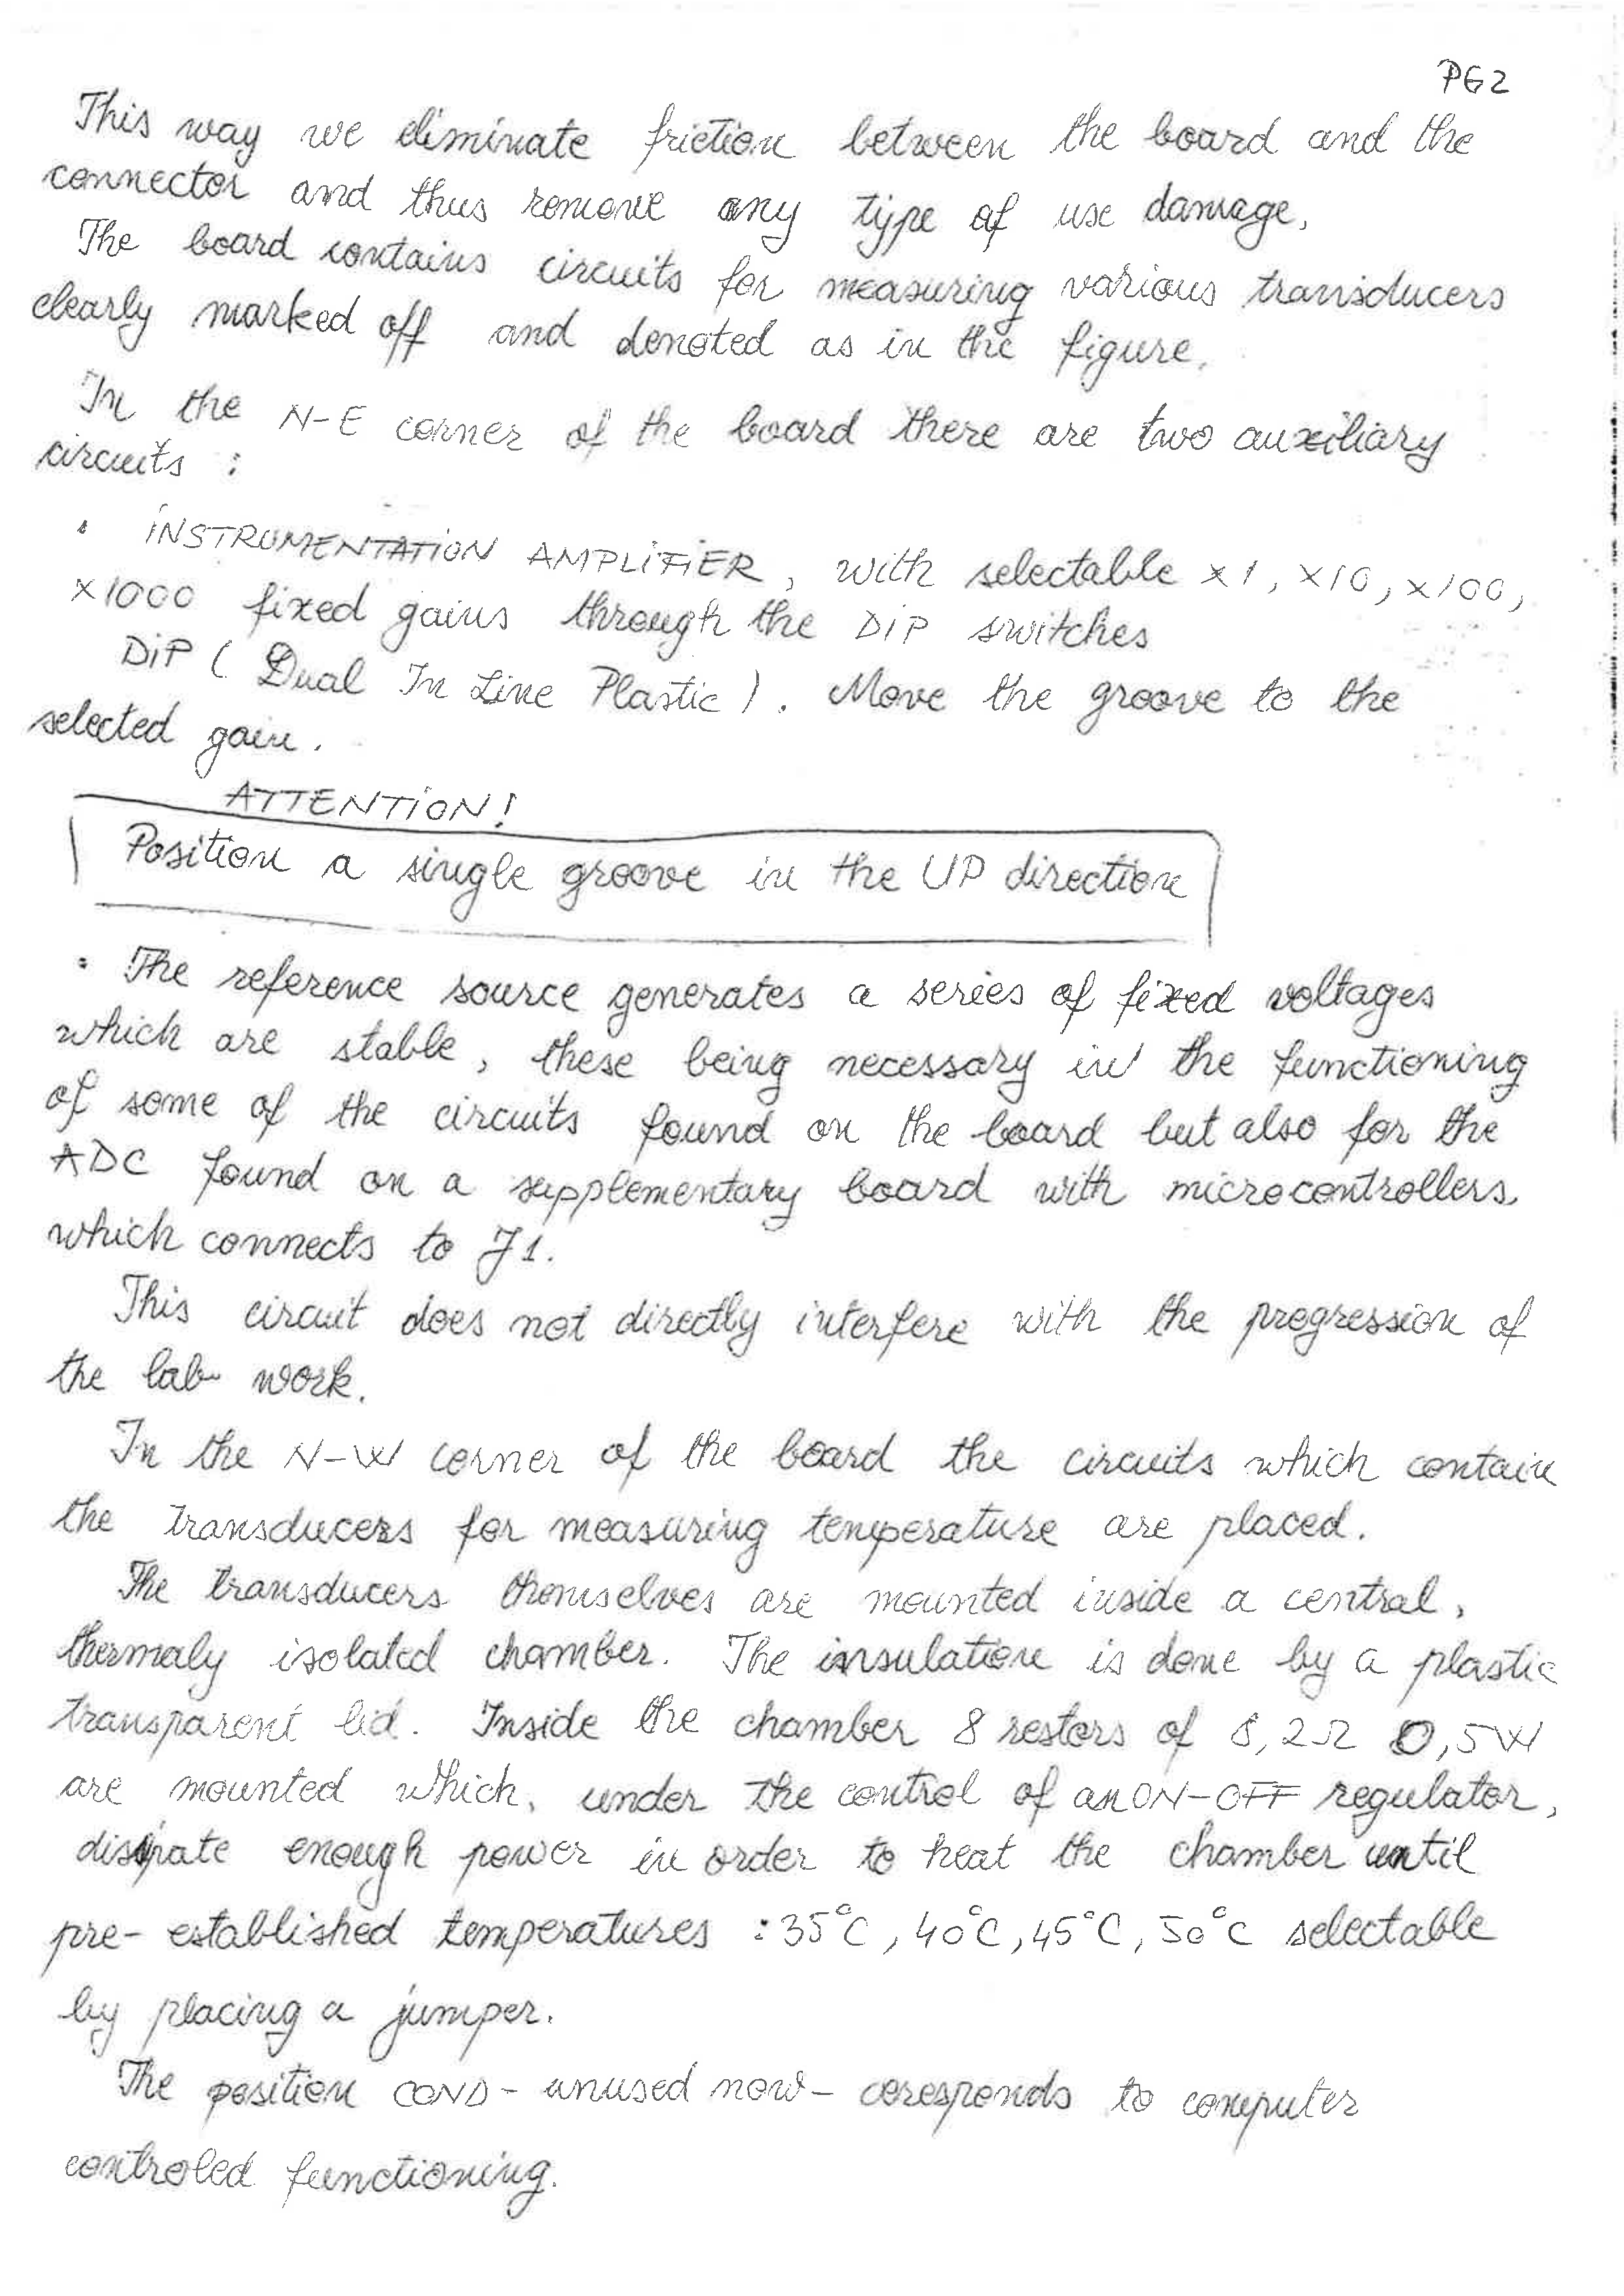 PG2
This way we eliminate friction between the board and the
connector and thus remove any type of use damage.
The board contains circuits for measuring various transducers
clearly marked off and denoted as in the figure.
In the N-E corner of the board there are two auxiliary
circuits :
• INSTRUMENTATION AMPLIFIER, with selectable x1, x10, x100,
x1000 fixed gains through the DIP switches
DIP ( Dual In Line Plastic ). Move the groove to the
selected gain.
ATTENTION!
Position a single groove in the UP direction
• The reference source generates a series of fixed voltages
which are stable, these being necessary in the functioning
of some of the circuits found on the board but also for the
ADC found on a supplementary board with microcontrollers
which connects to J1.
This circuit does not directly interfere with the progression of
the lab work.
In the N-W corner of the board the circuits which contain
the transducers for measuring temperature are placed.
The transducers themselves are mounted inside a central,
thermaly isolated chamber. The insulation is done by a plastic
transparent lid. Inside the chamber 8 restors of 8,2Ω 0,5W
are mounted which, under the control of an ON-OFF regulator,
disipate enough power in order to heat the chamber until
pre-established temperatures : 35°C, 40°C, 45°C, 50°C selectable
by placing a jumper.
The position COND - unused now - coresponds to computer
controled functioning.